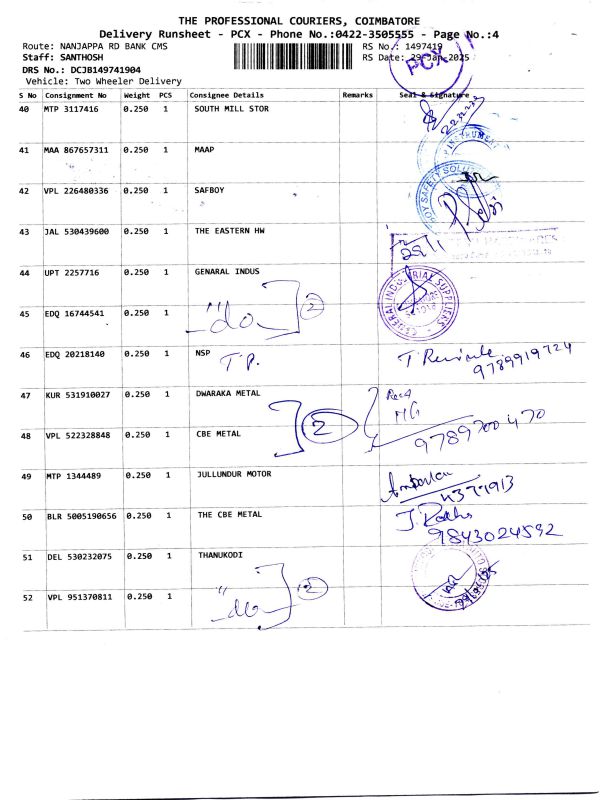 THE PROFESSIONAL COURIERS, COIMBATORE
Delivery Runsheet - PCX - Phone No.:0422-3505555 - Page No.:4
Route: NANJAPPA RD BANK CMS RS No.: 1497419
Staff: SANTHOSH RS Date: 29 Jan 2025
DRS No.: DCJB149741904
Vehicle: Two Wheeler Delivery
PCX
S No Consignment No Weight PCS Consignee Details Remarks Seal & Signature
40 MTP 3117416 0.250 1 SOUTH MILL STOR
41 MAA 867657311 0.250 1 MAAP
42 VPL 226480336 0.250 1 SAFBOY
43 JAL 530439600 0.250 1 THE EASTERN HW 29/1
44 UPT 2257716 0.250 1 GENARAL INDUS
45 EDQ 16744541 0.250 1 "do 2
46 EDQ 20218140 0.250 1 NSP T.P. 9789919724
47 KUR 531910027 0.250 1 DWARAKA METAL
48 VPL 522328848 0.250 1 CBE METAL 2 9789700470
49 MTP 1344489 0.250 1 JULLUNDUR MOTOR
50 BLR 5005190656 0.250 1 THE CBE METAL 9843024592
51 DEL 530232075 0.250 1 THANUKODI
52 VPL 951370811 0.250 1 "do 2